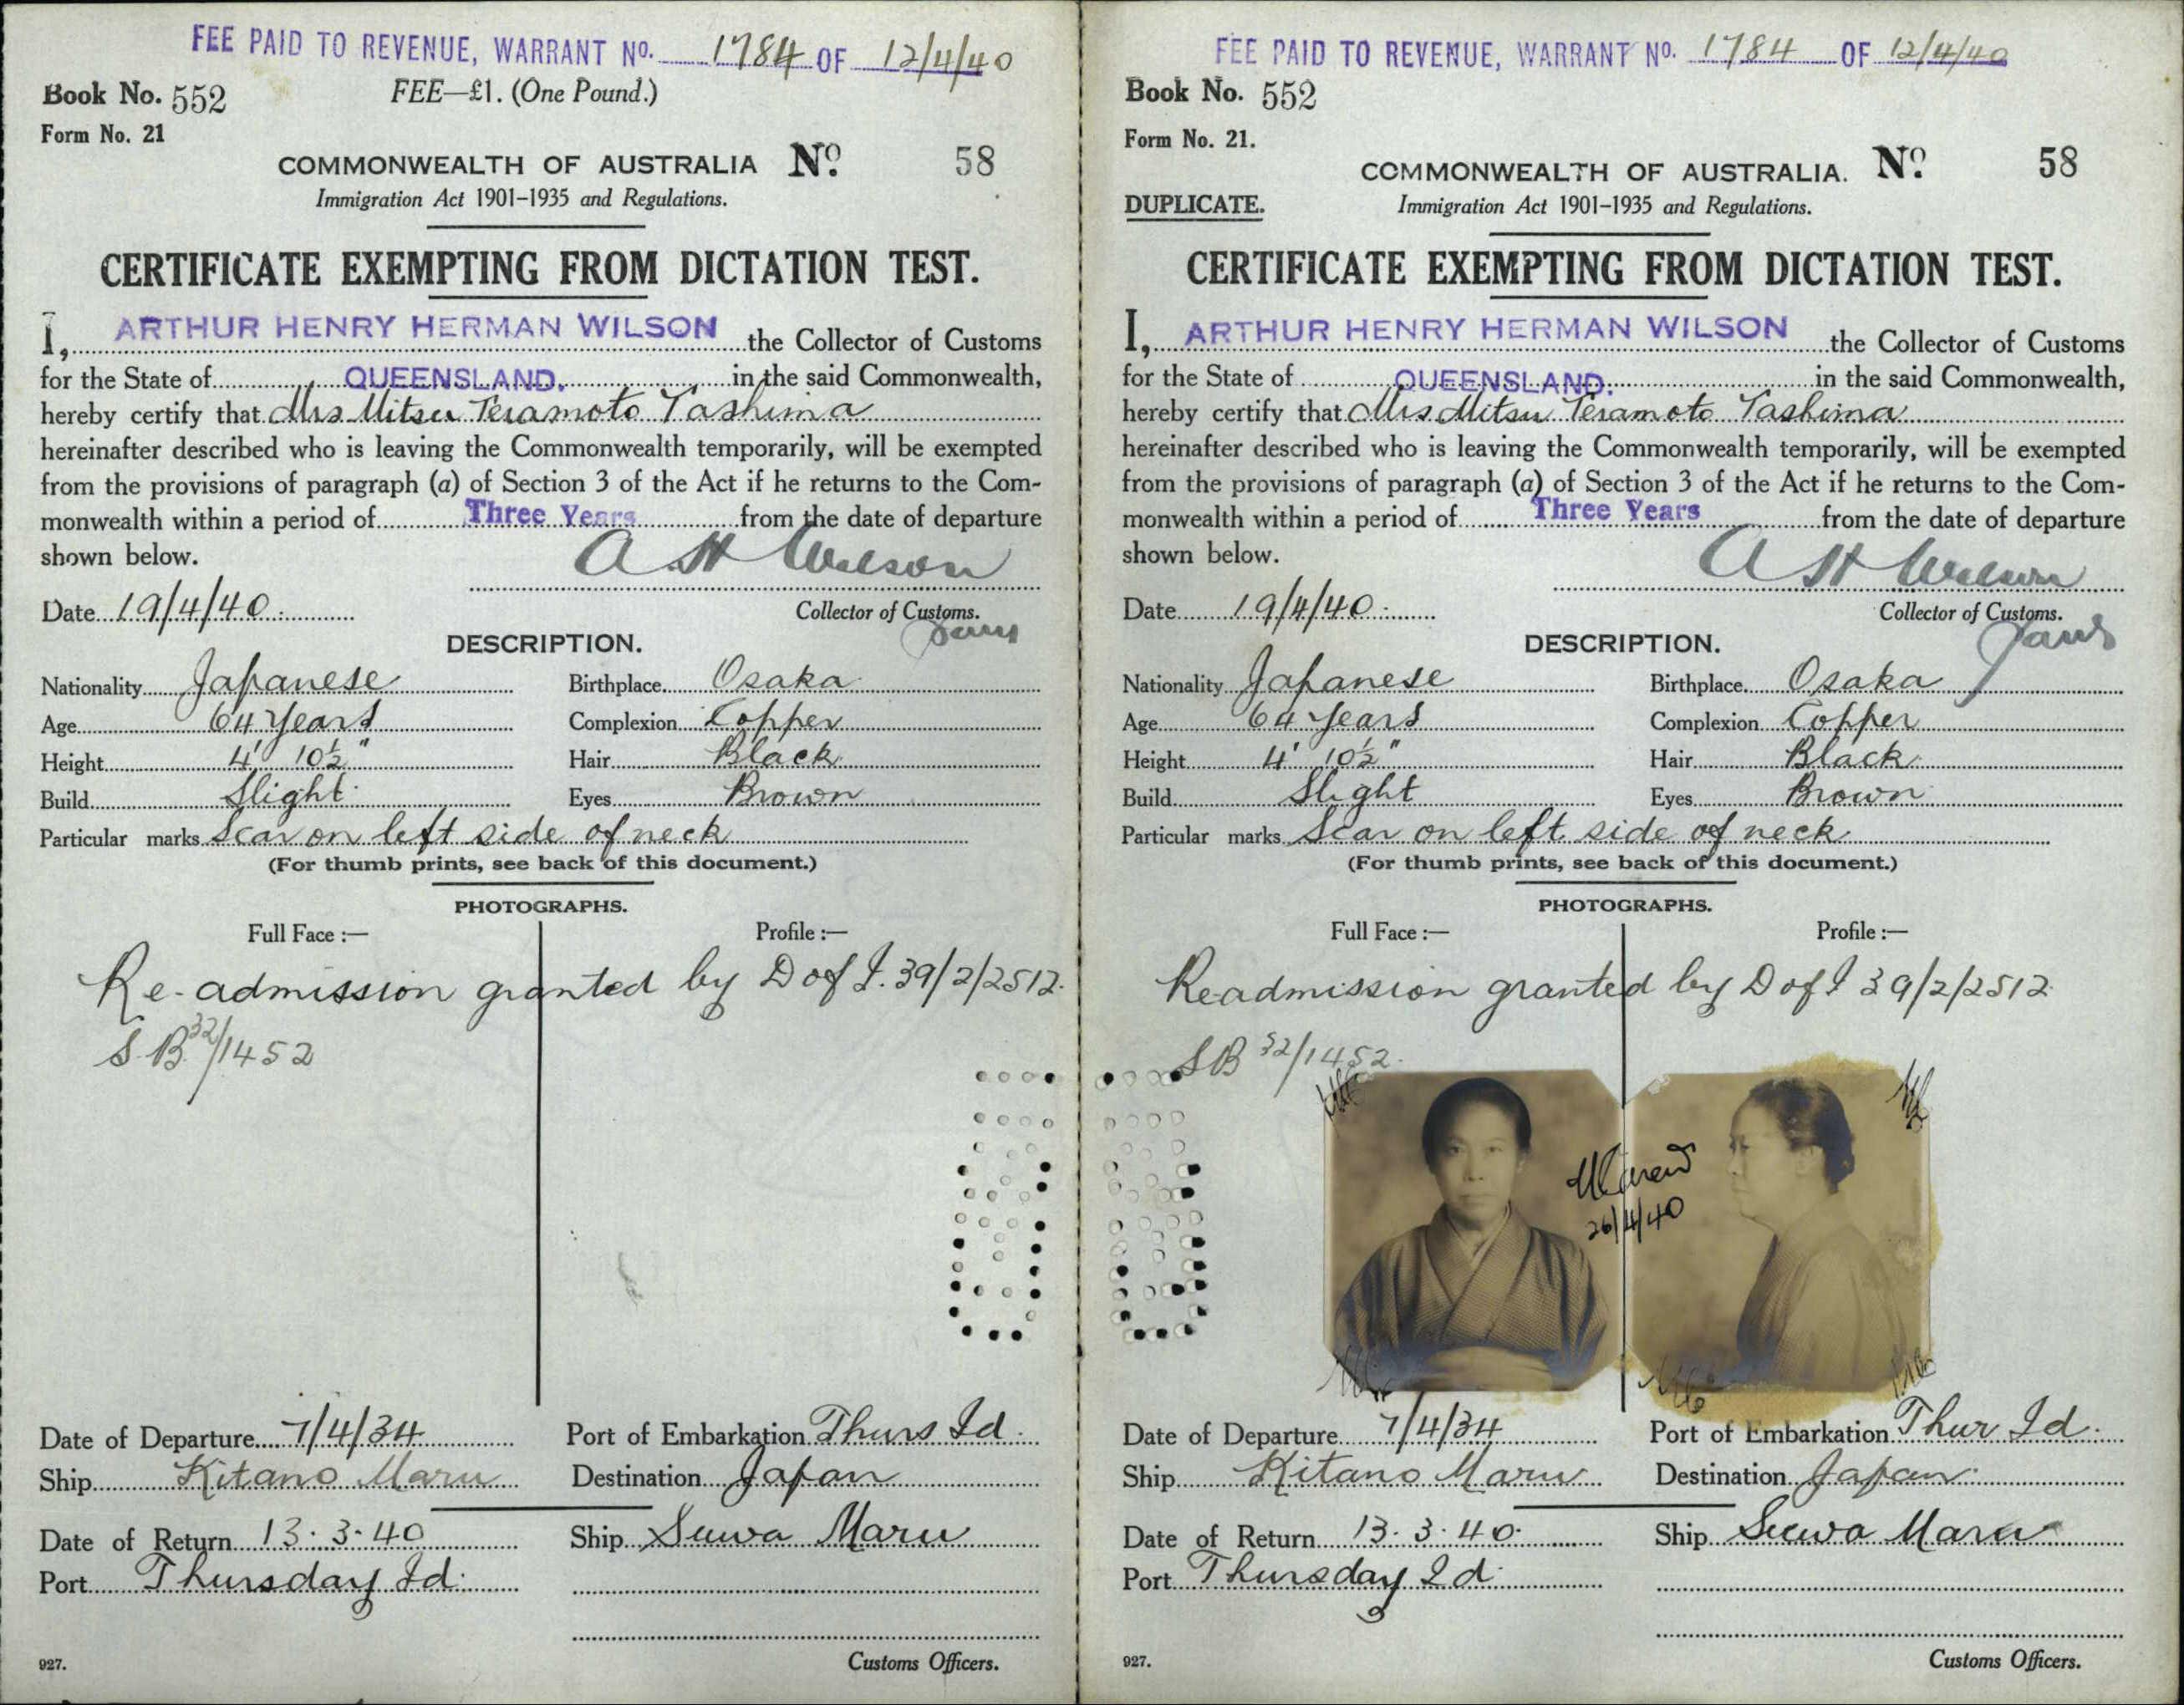 FEE PAID TO REVENUE, WARRANT No. 1784 OF 12/4/40
Book No. 552
FEE—£1. (One Pound.)
Form No. 21
COMMONWEALTH OF AUSTRALIA No. 58
Immigration Act 1901–1935 and Regulations.
CERTIFICATE EXEMPTING FROM DICTATION TEST.
I, ARTHUR HENRY HERMAN WILSON the Collector of Customs
for the State of QUEENSLAND. in the said Commonwealth,
hereby certify that Mrs Mitsu Teramoto Tashima
hereinafter described who is leaving the Commonwealth temporarily, will be exempted
from the provisions of paragraph (a) of Section 3 of the Act if he returns to the Com-
monwealth within a period of Three Years from the date of departure
shown below.
A H Wilson
Date 19/4/40
Collector of Customs.
DESCRIPTION.
Nationality Japanese Birthplace Osaka
Age 64 Years Complexion Copper
Height 4' 10½" Hair Black
Build Slight Eyes Brown
Particular marks Scar on left side of neck
(For thumb prints, see back of this document.)
PHOTOGRAPHS.
Full Face :— Profile :—
Re-admission granted by D of I. 39/2/2512.
S.B. 32/1452
Date of Departure 7/4/34 Port of Embarkation Thurs Id.
Ship Kitano Maru Destination Japan
Date of Return 13.3.40 Ship Suwa Maru
Port Thursday Id.
927. Customs Officers.
FEE PAID TO REVENUE, WARRANT No. 1784 OF 12/4/40
Book No. 552
Form No. 21.
COMMONWEALTH OF AUSTRALIA. No. 58
DUPLICATE.
Immigration Act 1901–1935 and Regulations.
CERTIFICATE EXEMPTING FROM DICTATION TEST.
I, ARTHUR HENRY HERMAN WILSON the Collector of Customs
for the State of QUEENSLAND. in the said Commonwealth,
hereby certify that Mrs Mitsu Teramoto Tashima
hereinafter described who is leaving the Commonwealth temporarily, will be exempted
from the provisions of paragraph (a) of Section 3 of the Act if he returns to the Com-
monwealth within a period of Three Years from the date of departure
shown below.
A H Wilson
Date 19/4/40
Collector of Customs.
DESCRIPTION.
Nationality Japanese Birthplace Osaka
Age 64 Years Complexion Copper
Height 4' 10½" Hair Black
Build Slight Eyes Brown
Particular marks Scar on left side of neck
(For thumb prints, see back of this document.)
PHOTOGRAPHS.
Full Face :— Profile :—
Readmission granted by D of I 39/2/2512
SB 32/1452.
26/4/40
Date of Departure 7/4/34 Port of Embarkation Thur Id.
Ship Kitano Maru Destination Japan
Date of Return 13.3.40. Ship Suwa Maru
Port Thursday Id.
927. Customs Officers.